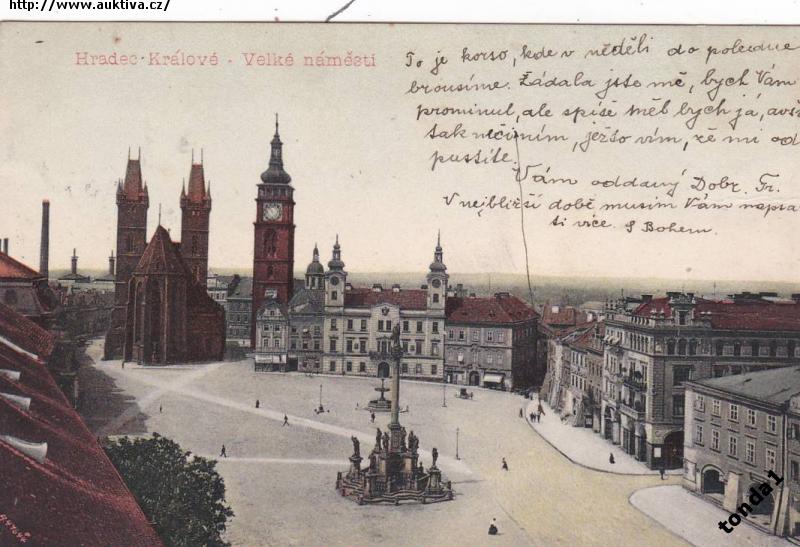 http://www.auktiva.cz/
Hradec Králové - Velké náměstí
To je korso, kde v neděli do poledne
brousíme. Žádala jste mě, bych Vám
prominul, ale spíše měl bych já,
tak učiním, ježto vím, že mi od
pustíte.
Vám oddaný Dobr. Fr.
V nejbližší době musím Vám napsa
ti více. S Bohem.
tonda1